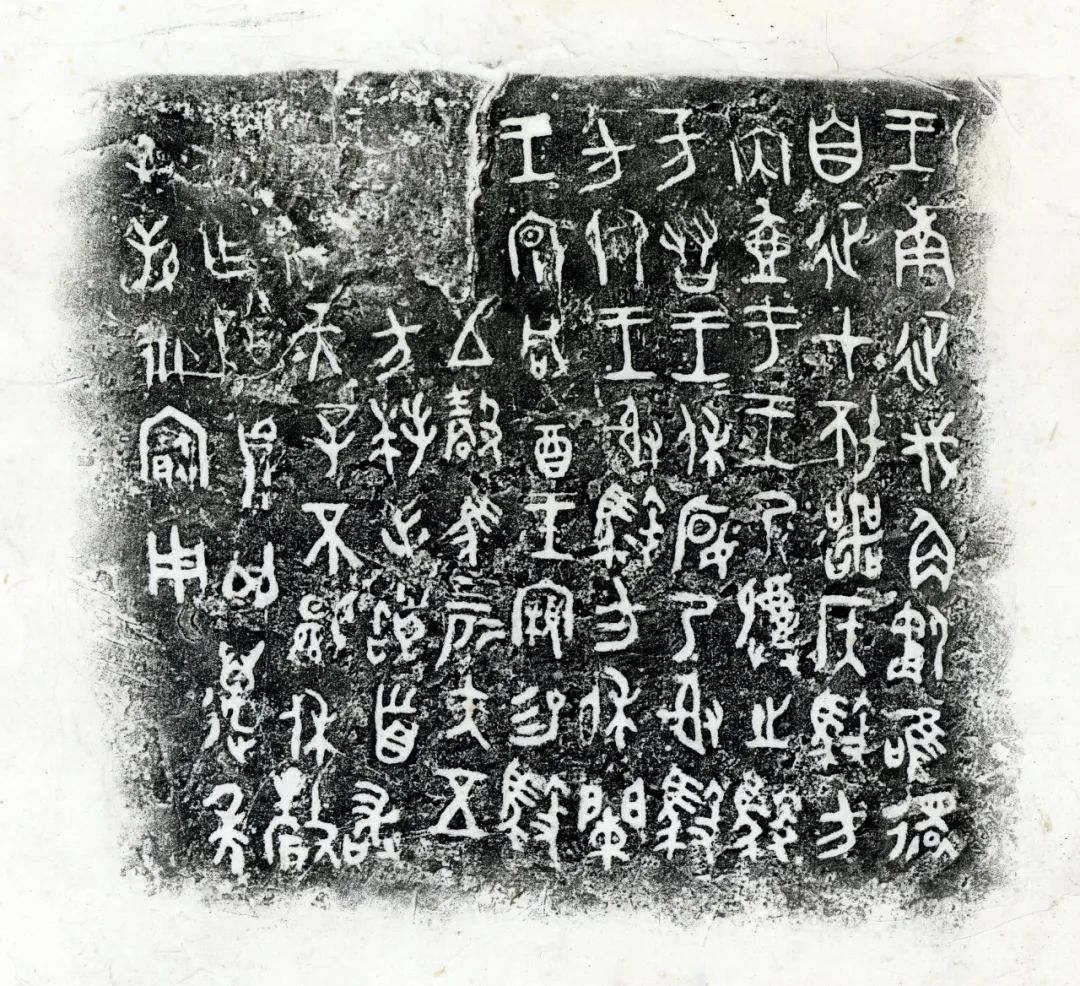 王南征伐角僪唯還
自征才坯噩侯馭方
內壺于王乃祼之馭
方友王王休匽乃射馭
方卿王射馭方休闌
王宴咸酓王親易馭
五瑴馬四匹矢五
方拜手𩒨首敢
天子不顯休釐
乍尊鼎其邁年
子孫永寶用